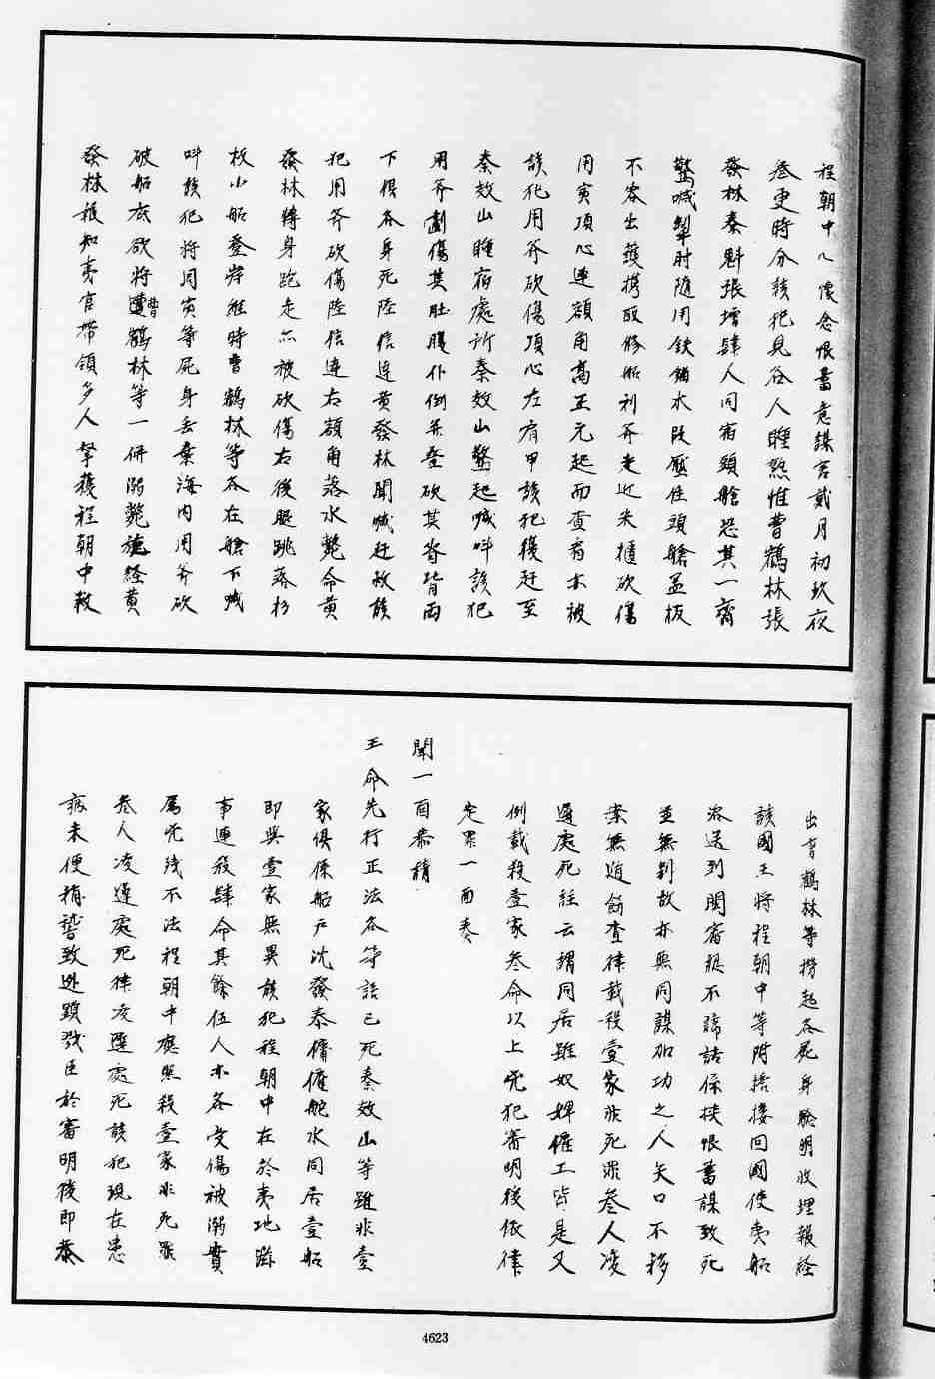 程朝中心懷忿恨蓄意謀害貳月初玖夜
叁更時分該犯見各人睡熟惟曹鶴林張
發林秦魁張增肆人同宿頭艙恐其一齊
驚喊掣肘隨用鉄錨木段壓住頭艙盖板
不容出護携取修船利斧走近米櫃砍傷
周寅頂心連額角高正元起而查看亦被
該犯用斧砍傷頂心左肩甲該犯復赶至
秦效山睡宿處所秦效山驚起喊呌該犯
用斧劃傷其肚腹仆倒并叠砍其脊背両
下俱各身死陸信連黄發林聞喊赶救該
犯用斧砍傷陸信連右額角落水斃命黄
發林轉身跑走亦被砍傷右後腿跳落杉
板小船登岸維時曹鶴林等各在艙下喊
呌該犯將周寅等屍身丢棄海内用斧砍
破船底欲將曹鶴林等一併溺斃旋經黄
發林報知夷官帶領多人拏獲程朝中救
出曹鶴林等撈起各屍身驗明收埋報經
該國王將程朝中等附搭接回國使夷船
咨送到閩審據不諱詰係挾恨蓄謀致死
並無别故亦無同謀加功之人矢口不移
案無遁飾查律載殺壹家非死罪叁人凌
遲處死註云謂同居雖奴婢僱工皆是又
例載殺壹家叁命以上兇犯審明後依律
定罪一面奏
聞一面恭請
王命先行正法各等語已死秦效山等雖非壹
家俱係船户沈發泰傭僱舵水同居壹船
即與壹家無異該犯程朝中在於夷地蹈
事連殺肆命其餘伍人亦各受傷被溺實
属兇殘不法程朝中應照殺壹家非死罪
叁人凌遲處死律凌遲處死該犯現在患
病未便稍稽致逃顕戮臣於審明後即恭
4623